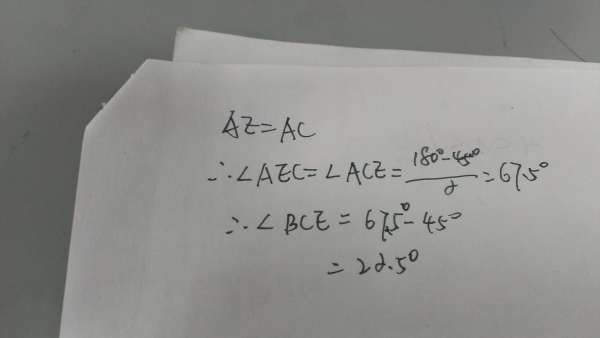 AE=AC
∴∠AEC=∠ACE=(180°-45°)/2=67.5°
∴∠BCE=67.5°-45°
=22.5°